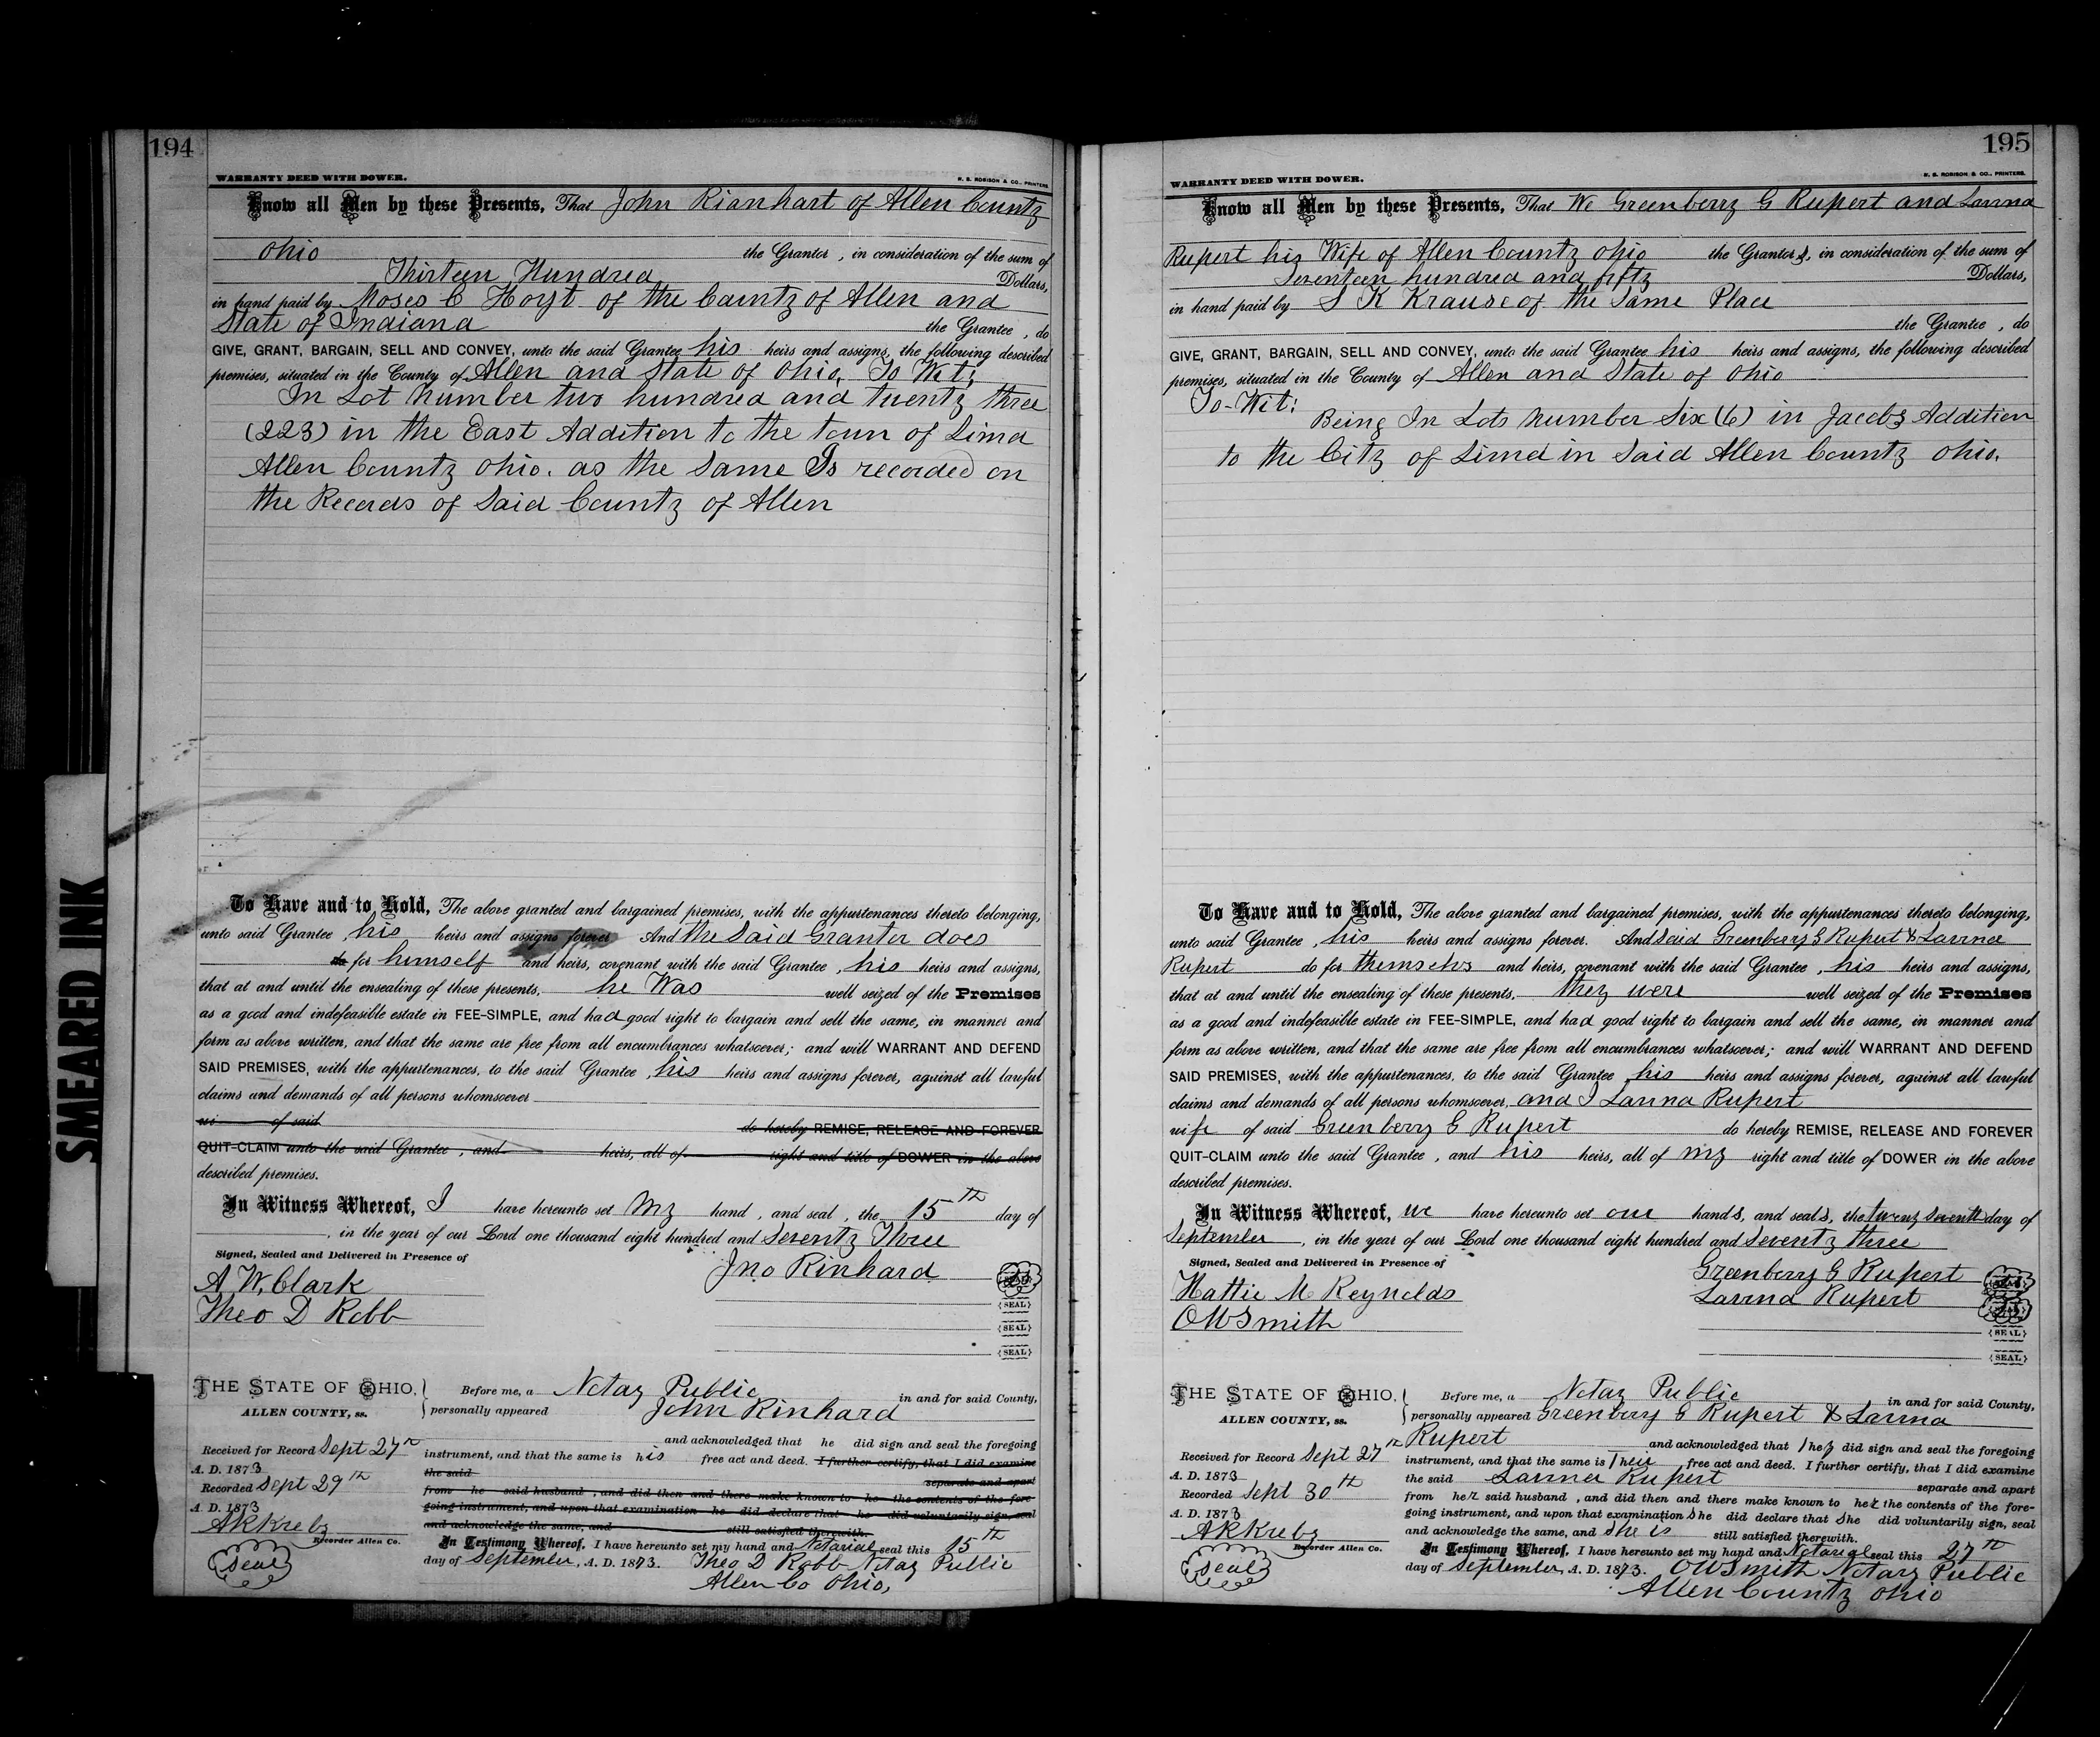 SMEARED INK
194
WARRANTY DEED WITH DOWER.
Know all Men by these Presents, That John Rianhart of Allen County
Ohio the Grantor , in consideration of the sum of
Thirteen Hundred Dollars,
in hand paid by Moses C Hoyt of the County of Allen and
State of Indiana the Grantee , do
GIVE, GRANT, BARGAIN, SELL AND CONVEY, unto the said Grantee his heirs and assigns, the following described
premises, situated in the County of Allen and State of Ohio, To Wit;
In Lot Number two hundred and twenty three
(223) in the East Addition to the town of Lima
Allen County Ohio. as the Same Is recorded on
the Records of Said County of Allen
To Have and to Hold, The above granted and bargained premises, with the appurtenances thereto belonging,
unto said Grantee , his heirs and assigns forever And the Said Grantor does
do for himself and heirs, covenant with the said Grantee , his heirs and assigns,
that at and until the ensealing of these presents, he Was well seized of the Premises
as a good and indefeasible estate in FEE-SIMPLE, and had good right to bargain and sell the same, in manner and
form as above written, and that the same are free from all encumbrances whatsoever; and will WARRANT AND DEFEND
SAID PREMISES, with the appurtenances, to the said Grantee , his heirs and assigns forever, against all lawful
claims and demands of all persons whomsoever
wi of said do hereby REMISE, RELEASE AND FOREVER
QUIT-CLAIM unto the said Grantee , and heirs, all of right and title of DOWER in the above
described premises.
In Witness Whereof, I have hereunto set My hand , and seal , the 15th day of
, in the year of our Lord one thousand eight hundred and Seventy Three
Signed, Sealed and Delivered in Presence of
Jno Rinhard
A W. Clark
{SEAL}
Theo D Robb
{SEAL}
{SEAL}
THE STATE OF OHIO, Before me, a Notay Public in and for said County,
ALLEN COUNTY, ss. personally appeared John Rinhard
and acknowledged that he did sign and seal the foregoing
Received for Record Sept 27th instrument, and that the same is his free act and deed. I further certify, that I did examine
A. D. 1873 the said separate and apart
Recorded Sept 29th from he said husband , and did then and there make known to he the contents of the fore-
A. D. 1873 going instrument, and upon that examination he did declare that he did voluntarily sign, seal
AR Krebz and acknowledge the same, and still satisfied therewith.
Recorder Allen Co. In Testimony Whereof, I have hereunto set my hand and Notarial seal this 15th
Seal day of September, A. D. 1873. Theo D Robb Notay Public
Allen Co Ohio,
195
WARRANTY DEED WITH DOWER.
Know all Men by these Presents, That We Greenberry G Rupert and Lavina
Rupert his Wife of Allen County Ohio the Grantors, in consideration of the sum of
Seventeen hundred and fifty Dollars,
in hand paid by S K Krause of the Same Place
the Grantee , do
GIVE, GRANT, BARGAIN, SELL AND CONVEY, unto the said Grantee his heirs and assigns, the following described
premises, situated in the County of Allen and State of Ohio
To-Wit:
Being In Lots Number Six (6) in Jacobs Addition
to the City of Lima in Said Allen County Ohio.
To Have and to Hold, The above granted and bargained premises, with the appurtenances thereto belonging,
unto said Grantee , his heirs and assigns forever. And Said Greenberry G Rupert & Lavina
Rupert do for themselvs and heirs, covenant with the said Grantee , his heirs and assigns,
that at and until the ensealing of these presents, they were well seized of the Premises
as a good and indefeasible estate in FEE-SIMPLE, and had good right to bargain and sell the same, in manner and
form as above written, and that the same are free from all encumbrances whatsoever; and will WARRANT AND DEFEND
SAID PREMISES, with the appurtenances, to the said Grantee , his heirs and assigns forever, against all lawful
claims and demands of all persons whomsoever, and I Lavina Rupert
wife of said Greenberry G Rupert do hereby REMISE, RELEASE AND FOREVER
QUIT-CLAIM unto the said Grantee , and his heirs, all of my right and title of DOWER in the above
described premises.
In Witness Whereof, we have hereunto set our hands, and seals, the twenty Seventh day of
September , in the year of our Lord one thousand eight hundred and Seventy three
Signed, Sealed and Delivered in Presence of
Greenberry G Rupert
Hattie M Reynolds
Lavina Rupert
OW Smith
{SEAL}
{SEAL}
THE STATE OF OHIO, Before me, a Notay Public in and for said County,
ALLEN COUNTY, ss. personally appeared Greenberry G Rupert & Lavina
Rupert and acknowledged that They did sign and seal the foregoing
Received for Record Sept 27th instrument, and that the same is Their free act and deed. I further certify, that I did examine
A. D. 1873 the said Lavina Rupert separate and apart
Recorded Sept 30th from her said husband , and did then and there make known to her the contents of the fore-
A. D. 1873 going instrument, and upon that examination She did declare that She did voluntarily sign, seal
AR Krebz and acknowledge the same, and She is still satisfied therewith.
Recorder Allen Co. In Testimony Whereof, I have hereunto set my hand and Notarial seal this 27th
Seal day of September, A. D. 1873. OW Smith Notary Public
Allen County Ohio